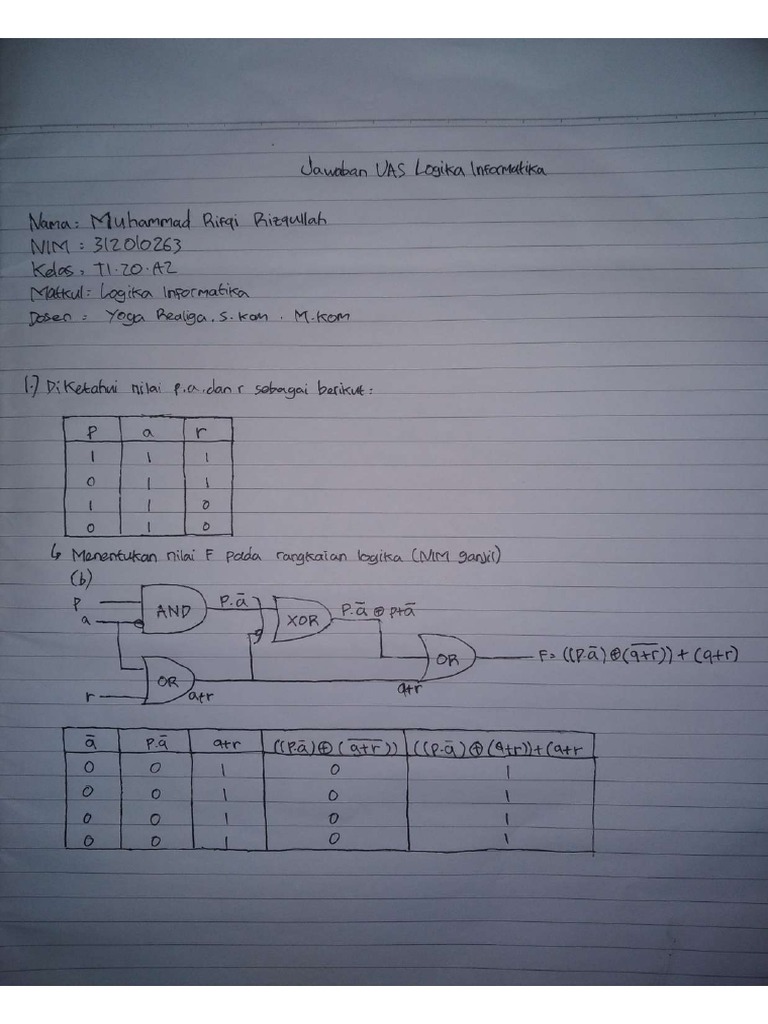 Jawaban UAS Logika Informatika
Nama: Muhammad Rifqi Rizqullah
NIM : 312010263
Kelas : TI.20.A2
Matkul: Logika Informatika
Dosen : Yoga Realiga. S. Kom . M.Kom
1.) Diketahui nilai p.a.dan r sebagai berikut:
p a r
1 1 1
0 1 1
1 1 0
0 1 0
↳ Menentukan nilai F pada rangkaian logika (NIM ganjil)
(b)
p AND P.ā XOR P.ā ⊕ p+ā
a
OR F= ((P.ā) ⊕ (\overline{q+r})) + (q+r)
r OR a+r q+r
ā P.ā a+r ((P.ā) ⊕ (\overline{q+r})) ((P.ā) ⊕ (q+r))+(a+r
0 0 1 0 1
0 0 1 0 1
0 0 1 0 1
0 0 1 0 1